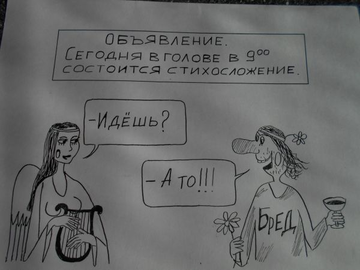 ОБЪЯВЛЕНИЕ.
СЕГОДНЯ В ГОЛОВЕ В 9⁰⁰
СОСТОИТСЯ СТИХОСЛОЖЕНИЕ.
-ИДЁШЬ?
-А ТО!!!
БРЕД